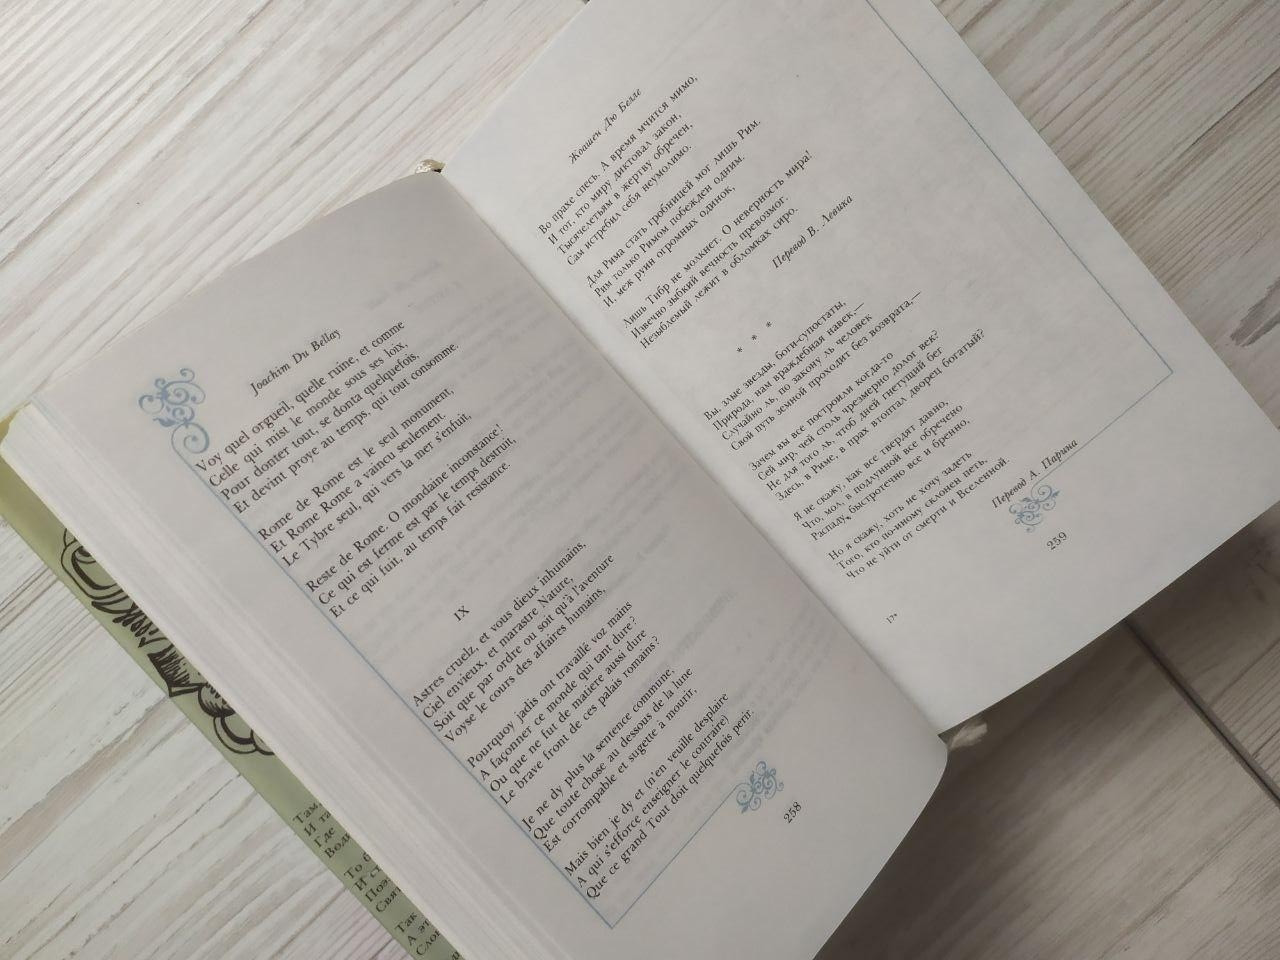 Joachim Du Bellay
Voy quel orgueil, quelle ruine, et comme
Celle qui mist le monde sous ses loix,
Pour donter tout, se donta quelquefois,
Et devint proye au temps, qui tout consomme.
Rome de Rome est le seul monument,
Et Rome Rome a vaincu seulement.
Le Tybre seul, qui vers la mer s'enfuit,
Reste de Rome. O mondaine inconstance!
Ce qui est ferme est par le temps destruit,
Et ce qui fuit, au temps fait resistance.
IX
Astres cruelz, et vous dieux inhumains,
Ciel envieux, et marastre Nature,
Soit que par ordre ou soit qu'à l'aventure
Voyse le cours des affaires humains,
Pourquoy jadis ont travaillé voz mains
A façonner ce monde qui tant dure?
Ou que ne fut de matière aussi dure
Le brave front de ces palais romains?
Je ne dy plus la sentence commune,
Que toute chose au dessous de la lune
Est corrompable et sugette à mourir,
Mais bien je dy et (n'en veuille desplaire
A qui s'efforce enseigner le contraire)
Que ce grand Tout doit quelquefois perir.
258
Жоашен Дю Белле
Во прахе спесь. А время мчится мимо,
И тот, кто миру диктовал закон,
Тысячелетьям в жертву обречен,
Сам истребил себя неумолимо.
Для Рима стать гробницей мог лишь Рим.
Рим только Римом побежден одним.
И, меж руин огромных одинок,
Лишь Тибр не молкнет. О неверность мира!
Извечно зыбкий вечность превозмог.
Незыблемый лежит в обломках сиро.
Перевод В. Левика
* * *
Вы, злые звезды, боги-супостаты,
Природа, нам враждебная навек,—
Случайно ль, по закону ль человек
Свой путь земной проходит без возврата,—
Зачем вы все построили когда-то
Сей мир, чей столь чрезмерно долог век?
Не для того ль, чтоб дней гнетущий бег
Здесь, в Риме, в прах втоптал дворец богатый?
Я не скажу, как все твердят давно,
Что, мол, в подлунной все обречено
Распаду, быстротечно все и бренно,
Но я скажу, хоть не хочу задеть
Того, кто по-иному склонен петь,
Что не уйти от смерти и Вселенной
Перевод А. Парина
259
17*
Там
И
Где
Води
То б
И ст
Поэ
Свя
Так
А эт
Слов